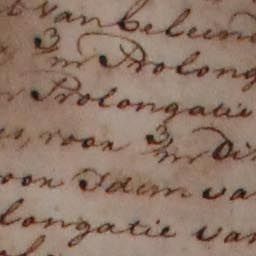 van beleend
3/m Prolong
Prolongatie
voor 3/m Di
voor Idem va
longatie van